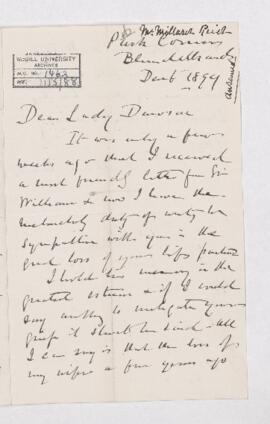 Mr Millarch Reid
Park Corner
Blundellsands
Dec 6 1899
answered
McGILL UNIVERSITY
ARCHIVES
ACC. NO. 1463
REF.
Dear Lady Dawson
It was only a few
weeks ago that I received
a most friendly letter from Sir
William & now I have the
melancholy duty of
sympathise with you in the
great loss of your life's partner
I hold his memory in the
greatest esteem & if I could
say anything to mitigate your
grief it should be said - All
I can say is that the loss of
my wife a few years ago